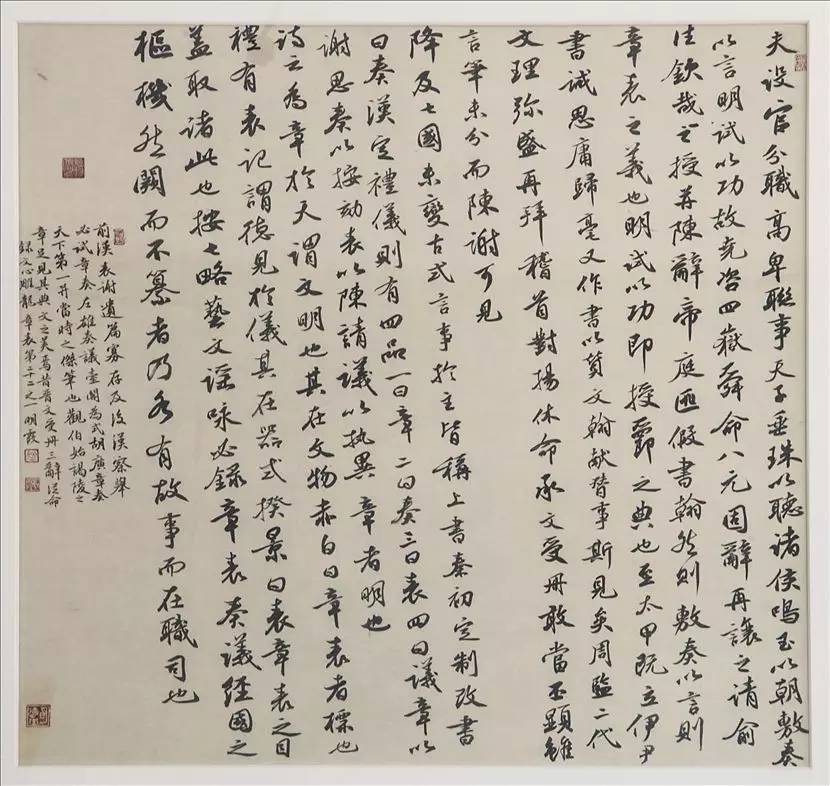 夫设官分職高卑聯事天子垂珠以聽诸侯鳴玉以朝敷奏
以言明试以功故尧咨四嶽舜命八元固辭再讓之请俞
往欽哉之授并陳辭帝庭匪假書翰然则敷奏以言則
章表之義也明試以功即授爵之典也至太甲既立伊尹
書誡思庸歸亳又作書以贊文翰献替事斯見矣周監二代
文理弥盛再拜稽首對揚休命承文受冊敢當丕顕雖
言筆未分而陳謝可見
降及七國未變古式言事於主皆稱上書秦初定制改書
曰奏漢定禮儀則有四品一曰章二曰奏三曰表四曰議章以
謝恩奏以按劾表以陳請議以執異章者明也
诗云為章於天謂文明也其在文物赤白曰章表者標也
禮有表記謂德見於儀其在器式揆景曰表章表之目
盖取诸此也按七略藝文谣咏必錄章表奏議經國之
樞機然闕而不纂者乃各有故事而在職司也
前漢表謝遺篇寡存及後漢察舉
必试章奏左雄奏議臺閣為式胡廣章奏
天下第一并當時之傑筆也觀伯始謁陵之
章足見其典文之美焉昔晋文受冊三辭從命
錄文心雕龍章表第二十二之一明霞